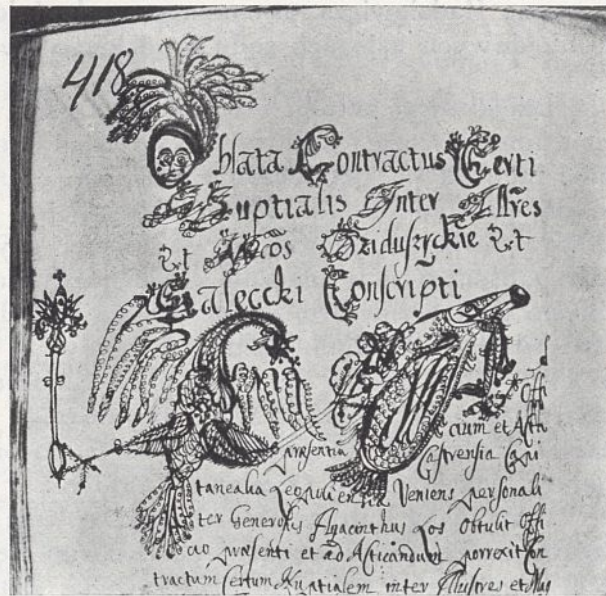 418
Oblata Contractus Certi
Nuptialis Inter Illres
Et Mcos Dziduszyckie Et
Galeccki Conscripti
Ad Offi
cium et Acta
præsentia Castrensia Capi
tanealia Leopoliensia Veniens personali
ter Generosus Hyacinthus Los Obtulit Offi
cio præsenti et ad Acticandum porrexit Con
tractum Certum Nuptialem inter Illustres et Mag